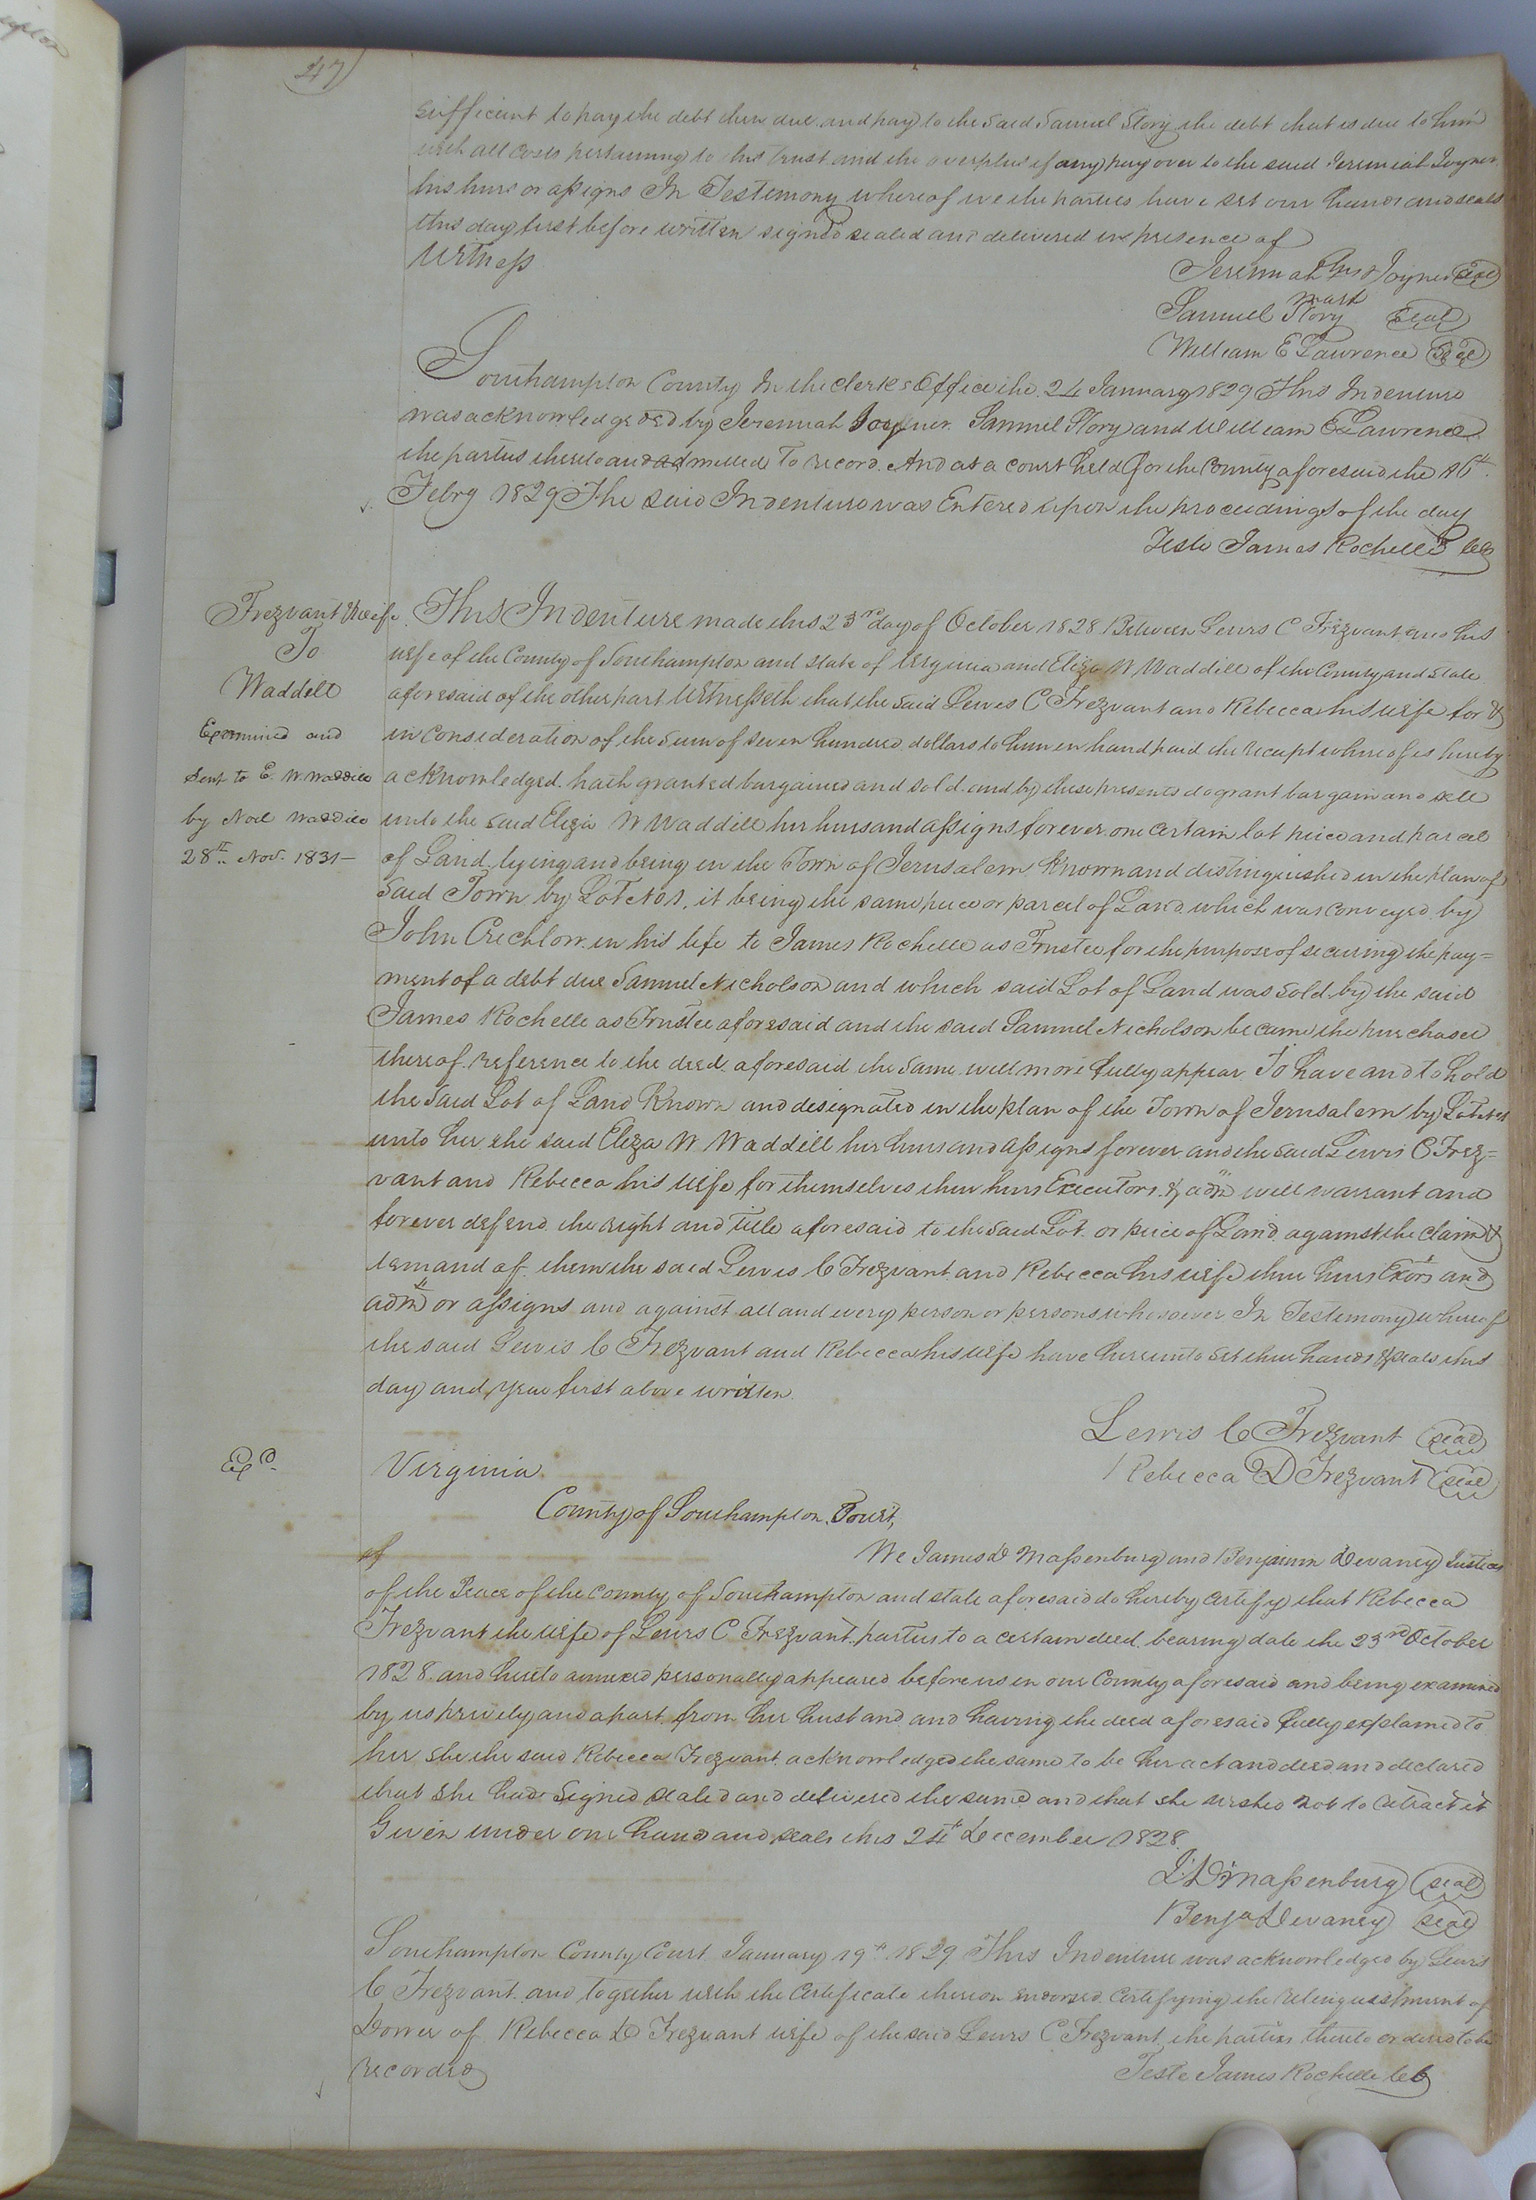 47
sufficient to pay the debt then due and pay to the said Samuel Story the debt that is due to him
with all costs pertaining to this trust and the overplus if any pay over to the said Jeremiah Joyner
his heirs or assigns In Testimony whereof we the parties have set our hands and seals
this day first before written signed sealed and delivered in presence of
Witness
Jeremiah his x Joyner Seal
mark
Samuel Story Seal
William E Lawrence Seal
Southampton County In the Clerks Office the 24 January 1829 This Indenture
was acknowledgeded by Jeremiah Joyner Samuel Story and William E Lawrence
the parties thereto and admitted to record. And at a court held for the County aforesaid the 16th
Febry 1829 The said Indenture was Entered upon the proceedings of the day
Teste James Rochelle CC
Trezvant & wife
To
Waddill
Examined and
Sent to E. W. Waddill
by Noel Waddill
28th Nov. 1831—
This Indenture made this 23rd day of October 1828 Between Lewis C Trezvant and his
wife of the County of Southampton and state of Virginia and Eliza W Waddill of the County and State
aforesaid of the other part Witnesseth that the said Lewis C Trezvant and Rebecca his wife for &
in consideration of the sum of seven hundred dollars to him in hand paid the receipt whereof is hereby
acknowledged. hath granted bargained and sold and by these presents do grant bargain and sell
unto the said Eliza W Waddill her heirs and assigns forever one certain lot piece and parcel
of Land lying and being in the Town of Jerusalem Known and distinguished in the plan of
said Town by Lot No 1, it being the same piece or parcel of Land which was conveyed by
John Crichlow in his life to James Rochelle as Trustee for the purpose of securing the pay=
ment of a debt due Samuel Nicholson and which said Lot of Land was sold by the said
James Rochelle as Trustee aforesaid and the said Samuel Nicholson became the purchaser
thereof reference to the deed aforesaid the same will more fully appear To have and to hold
the said Lot of Land Known and designated in the plan of the Town of Jerusalem by Lot No 1
unto her the said Eliza W Waddill her heirs and assigns forever and the said Lewis C Trez=
vant and Rebecca his wife for themselves their heirs Executors & adm will warrant and
forever defend the right and title aforesaid to the said Lot or piece of Land against the claim &
demand of them the said Lewis C Trezvant and Rebecca his wife their heirs Exors and
adms or assigns and against all and every person or persons whosoever In Testimony whereof
the said Lewis C Trezvant and Rebecca his wife have hereunto set their hands & seals this
day and year first above written.
Lewis C Trezvant seal
Rebecca D Trezvant seal
Exd.
Virginia
County of Southampton Court,
of We James D Massenburg and Benjamin Devaney Justices
of the Peace of the County of Southampton and state aforesaid do hereby certify that Rebecca
Trezvant the wife of Lewis C Trezvant parties to a certain deed bearing date the 23rd October
1828. and hereto annexed personally appeared before us in our County aforesaid and being examined
by us privily and apart from her husband and having the deed aforesaid fully explained to
her she the said Rebecca Trezvant acknowledged the same to be her act and deed and declared
that she had signed sealed and delivered the same and that she wished not to retract it
Given under our hand and seals this 24th December 1828.
J. D Massenburg seal
Benja Devaney seal
Southampton County Court January 19th 1829 This Indenture was acknowledged by Lewis
C Trezvant and together with the Certificate thereon endorsed certifying the relinquishment of
Dower of Rebecca D Trezvant wife of the said Lewis C Trezvant the parties thereto ordered to be
recorded
Teste James Rochelle CC